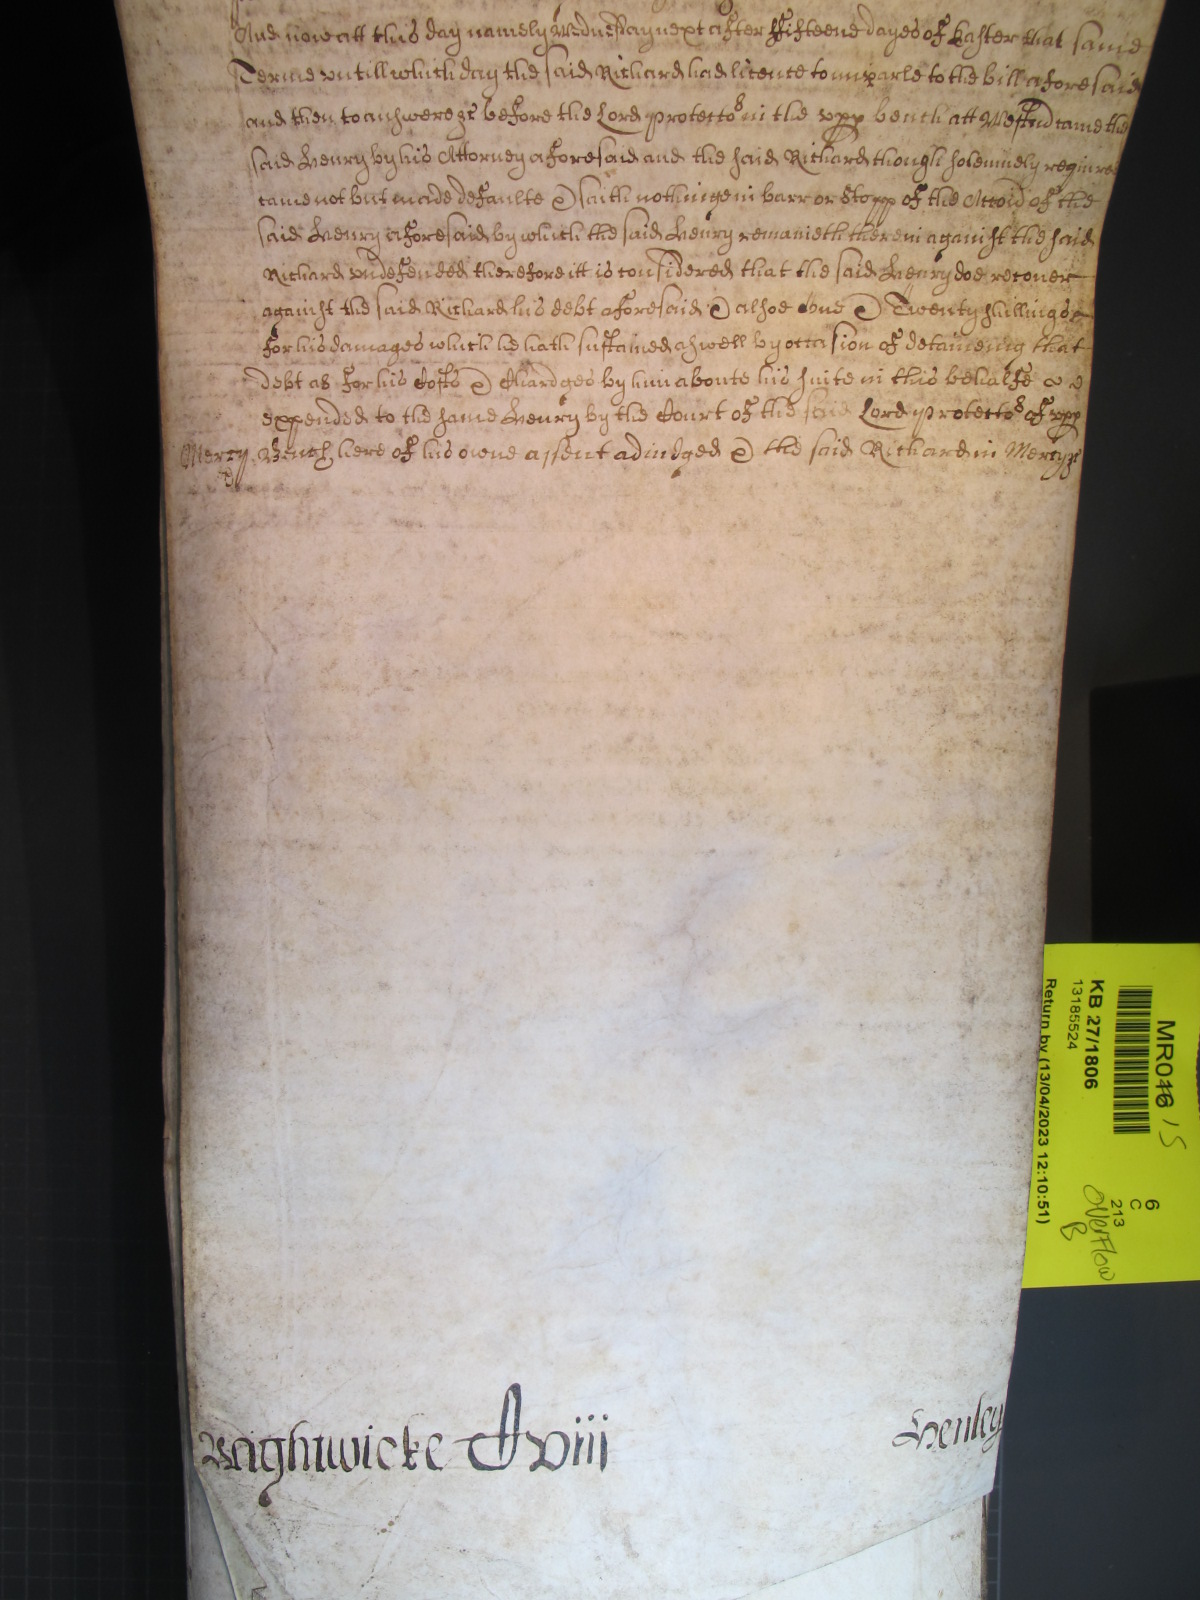 And now att this day namely Wednesday next after ffifteene dayes of Easter that same
Terme vntill which day the said Richard had licence to imparle to the bill aforesaid
and then to answere &c before the Lord protector in the vpp bench att Westm came the
said Henry by his Attorney aforesaid and the said Richard though solemnely required
came not but made defaulte & saith nothinge in barr or stopp of the Accon of the
said Henry aforesaid by which the said Henry remanieth therein against the said
Richard vndefended therefore itt is considered that the said Henry doe recouer
against the said Richard his debt aforesaid & alsoe one & Twenty shillings
for his damages which he hath sustained aswell by occasion of detaineing that
debt as for his Costs & Chardges by him aboute his suite in this behalfe
expended to the same Henry by the Court of the said Lord protector of vpp
Mercy Bench here of his owne assent adiudged & the said Richard in Mercy &c
Wightwicke viii Henley
MR016 15
KB 27/1806
13185524
Return by (13/04/2023 12:10:51)
6
C
213
Overflow
B